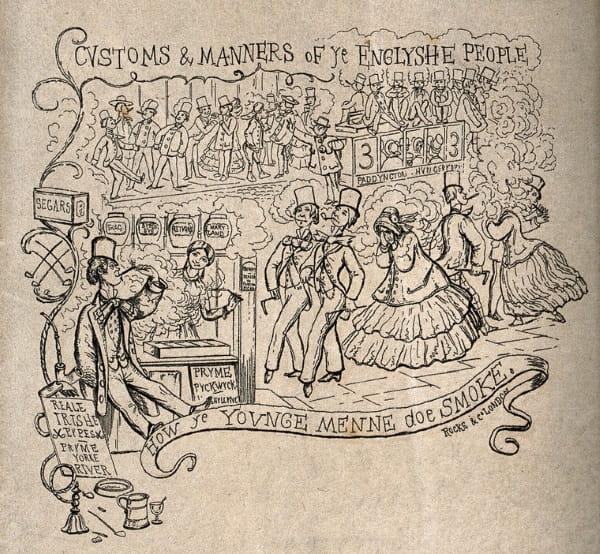 CVSTOMS & MANNERS oF ye ENGLYSHE PEOPLE
3
3
PADDYNGTON
SEGARS
RETVRNS
MARY LAND
PRYME
PYCKWYCK
REALE
IRISHE
PRYME
YORKE
RIVER
HOW ye YOVNGE MENNE doe SMOKE.
ROCKE & Co LONDON